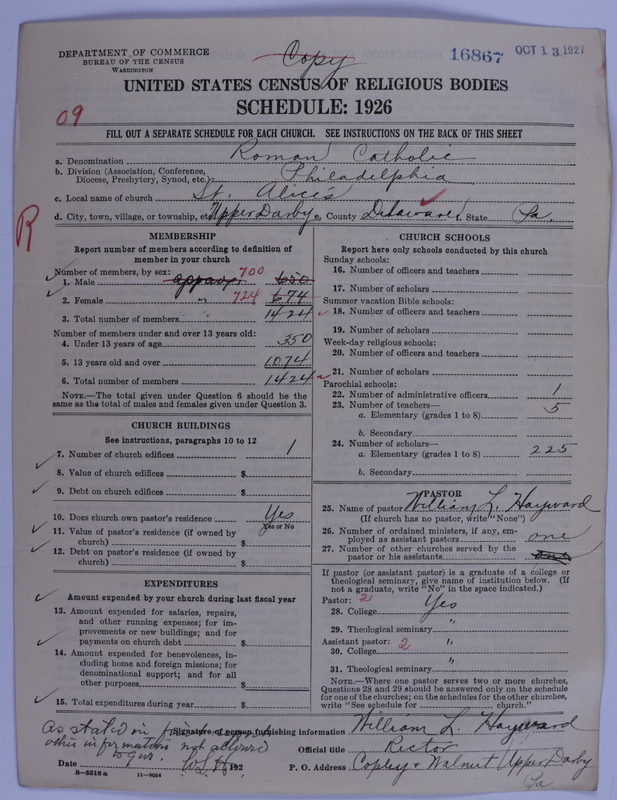 DEPARTMENT OF COMMERCE
BUREAU OF THE CENSUS
WASHINGTON
Copy
16867
OCT 13 1927
UNITED STATES CENSUS OF RELIGIOUS BODIES
SCHEDULE: 1926
09
FILL OUT A SEPARATE SCHEDULE FOR EACH CHURCH. SEE INSTRUCTIONS ON THE BACK OF THIS SHEET
a. Denomination Roman Catholic
b. Division (Association, Conference, Diocese, Presbytery, Synod, etc.) Philadelphia
c. Local name of church St. Alice's
d. City, town, village, or township, etc. Upper Darby e. County Delaware f. State Pa.
R
MEMBERSHIP
Report number of members according to definition of
member in your church
Number of members, by sex:
1. Male approx. 700 650
2. Female " 724 674
3. Total number of members 1424
Number of members under and over 13 years old:
4. Under 13 years of age 350
5. 13 years old and over 1074
6. Total number of members 1424
NOTE.—The total given under Question 6 should be
same as the total of males and females given under Question 3.
CHURCH BUILDINGS
See instructions, paragraphs 10 to 12
7. Number of church edifices 1
8. Value of church edifices $
9. Debt on church edifices $
10. Does church own pastor's residence Yes
Yes or No
11. Value of pastor's residence (if owned by
church) $
12. Debt on pastor's residence (if owned by
church) $
EXPENDITURES
Amount expended by your church during last fiscal year
13. Amount expended for salaries, repairs,
and other running expenses; for im-
provements or new buildings; and for
payments on church debt $
14. Amount expended for benevolences, in-
cluding home and foreign missions; for
denominational support; and for all
other purposes $
15. Total expenditures during year $
CHURCH SCHOOLS
Report here only schools conducted by this church
Sunday schools:
16. Number of officers and teachers
17. Number of scholars
Summer vacation Bible schools:
18. Number of officers and teachers
19. Number of scholars
Week-day religious schools:
20. Number of officers and teachers
21. Number of scholars
Parochial schools:
22. Number of administrative officers 1
23. Number of teachers—
a. Elementary (grades 1 to 8) 5
b. Secondary
24. Number of scholars—
a. Elementary (grades 1 to 8) 225
b. Secondary
PASTOR
25. Name of pastor William L. Hayward
(If church has no pastor, write "None")
26. Number of ordained ministers, if any, em-
ployed as assistant pastors one
27. Number of other churches served by the
pastor or his assistants
If pastor (or assistant pastor) is a graduate of a college or
theological seminary, give name of institution below. (If
not a graduate, write "No" in the space indicated.)
Pastor: 2
28. College Yes
29. Theological seminary "
Assistant pastor: 2
30. College "
31. Theological seminary "
NOTE.—Where one pastor serves two or more churches,
Questions 28 and 29 should be answered only on the schedule
for one of the churches; on the schedules for the other churches,
write "See schedule for church."
As stated in
other information not allowed
to give. W.L.H.
Signature of person furnishing information William L. Hayward
Official title Rector
Date 192
P. O. Address Copley & Walnut Upper Darby
Pa
8—5518 a 11—9024